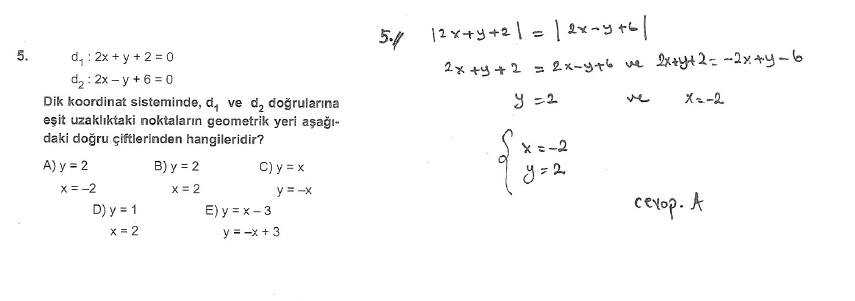 5.
d₁ : 2x + y + 2 = 0
d₂ : 2x – y + 6 = 0
Dik koordinat sisteminde, d₁ ve d₂ doğrularına
eşit uzaklıktaki noktaların geometrik yeri aşağı-
daki doğru çiftlerinden hangileridir?
A) y = 2 B) y = 2 C) y = x
x = –2 x = 2 y = –x
D) y = 1 E) y = x – 3
x = 2 y = –x + 3
5.// |2x+y+2| = |2x-y+6|
2x+y+2 = 2x-y+6 ve 2x+y+2 = -2x+y-6
y = 2 ve x = -2
x = -2
y = 2
cevap. A